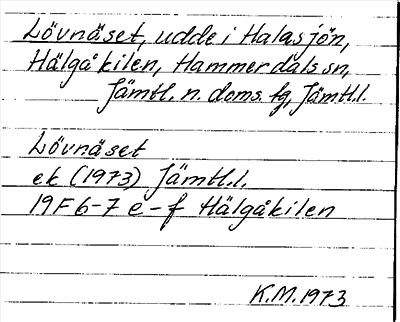 Lövnäset, udde i Halasjön,
Hälgåkilen, Hammerdals sn,
Jämtl. n. doms. fg, Jämtl.l.
Lövnäset
ek (1973) Jämtl.l.
19F 6-7 e-f Hälgåkilen
K.M. 1973